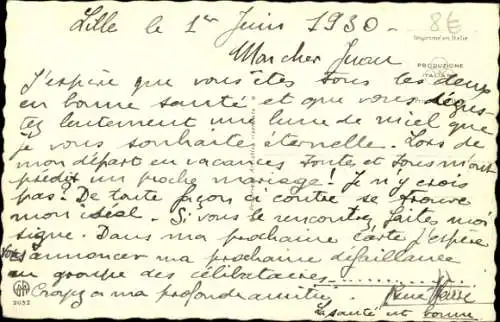 Lille le 1er Juin 1930 -
8€
Imprimé en Italie
Mon cher Juan
PRODUZIONE
ITALIANA
J'espère que vous êtes tous les deux
en bonne santé et que vous dégus-
tez lentement une lune de miel que
je vous souhaite éternelle. Lors de
mon départ en vacances toutes et tous m'ont
prédit un proche mariage! Je n'y crois
pas! De toute façon ci contre se trouve
mon idéal. Si vous le rencontrez faites moi
signe. Dans ma prochaine carte j'espère
vous annoncer ma prochaine défaillance
au groupe des célibataires
Croyez a ma profonde amitié. René
La santé est bonne
2052